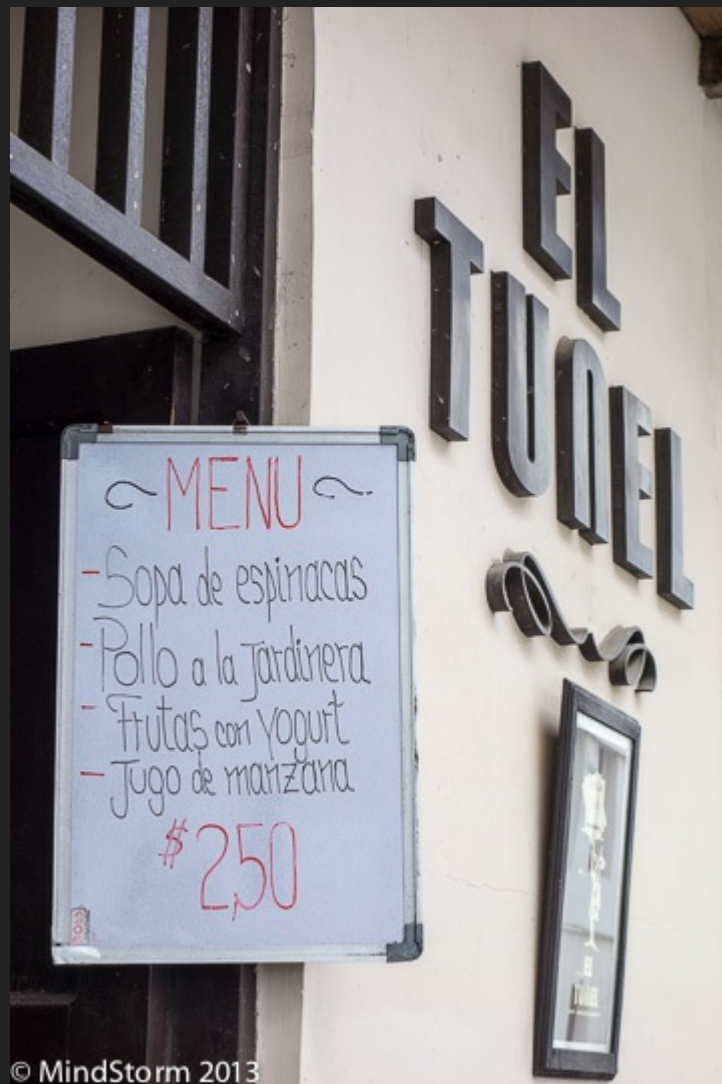 EL
TUNEL
MENU
- Sopa de espinacas
- Pollo a la jardinera
- Frutas con yogurt
- Jugo de manzana
$2,50
EL
TUNEL
© MindStorm 2013